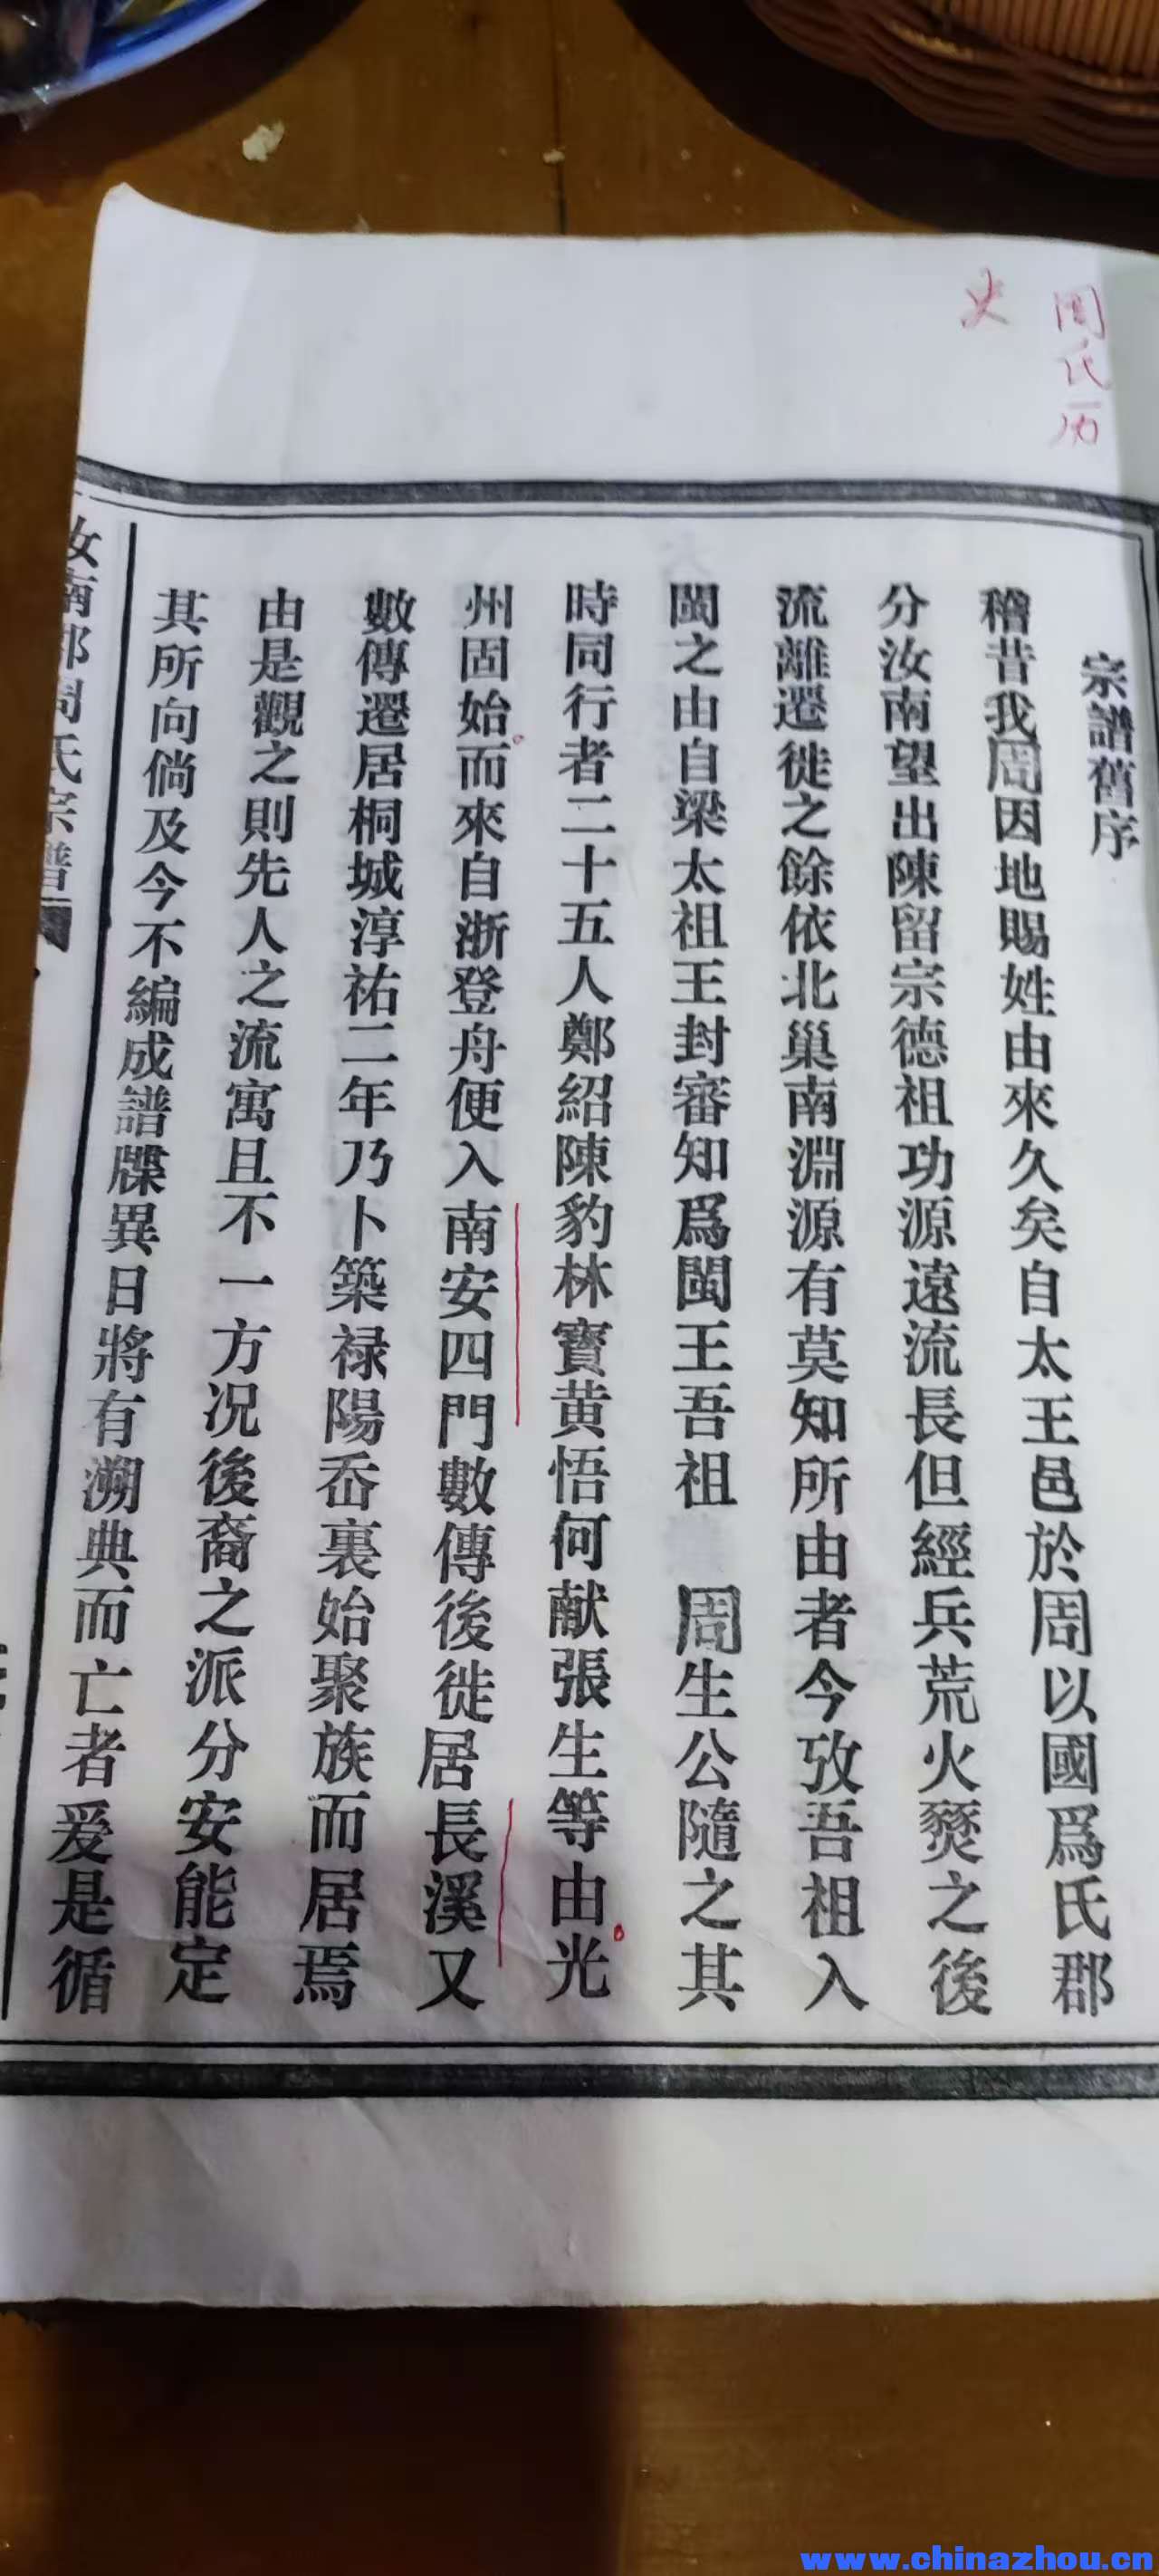 周氏历
史
宗譜舊序
稽昔我周因地賜姓由來久矣自太王邑於周以國爲氏郡
分汝南望出陳留宗德祖功源遠流長但經兵荒火燹之後
流離遷徙之餘依北巢南淵源有莫知所由者今攷吾祖入
閩之由自梁太祖王封審知爲閩王吾祖 周生公隨之其
時同行者二十五人鄭紹陳豹林寶黄悟何献張生等由光
州固始而來自浙登舟便入南安四門數傳後徙居長溪又
數傳遷居桐城淳祐二年乃卜築禄陽岙裏始聚族而居焉
由是觀之則先人之流寓且不一方况後裔之派分安能定
其所向倘及今不編成譜牒異日將有溯典而亡者爰是循
汝南郡周氏宗譜
www.chinazhou.cn